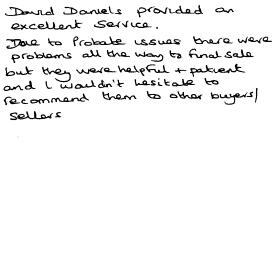 David Daniels provided an
excellent service.
Due to Probate issues there were
problems all the way to final sale
but they were helpful + patient
and I wouldn't hesitate to
recommend them to other buyers/
sellers